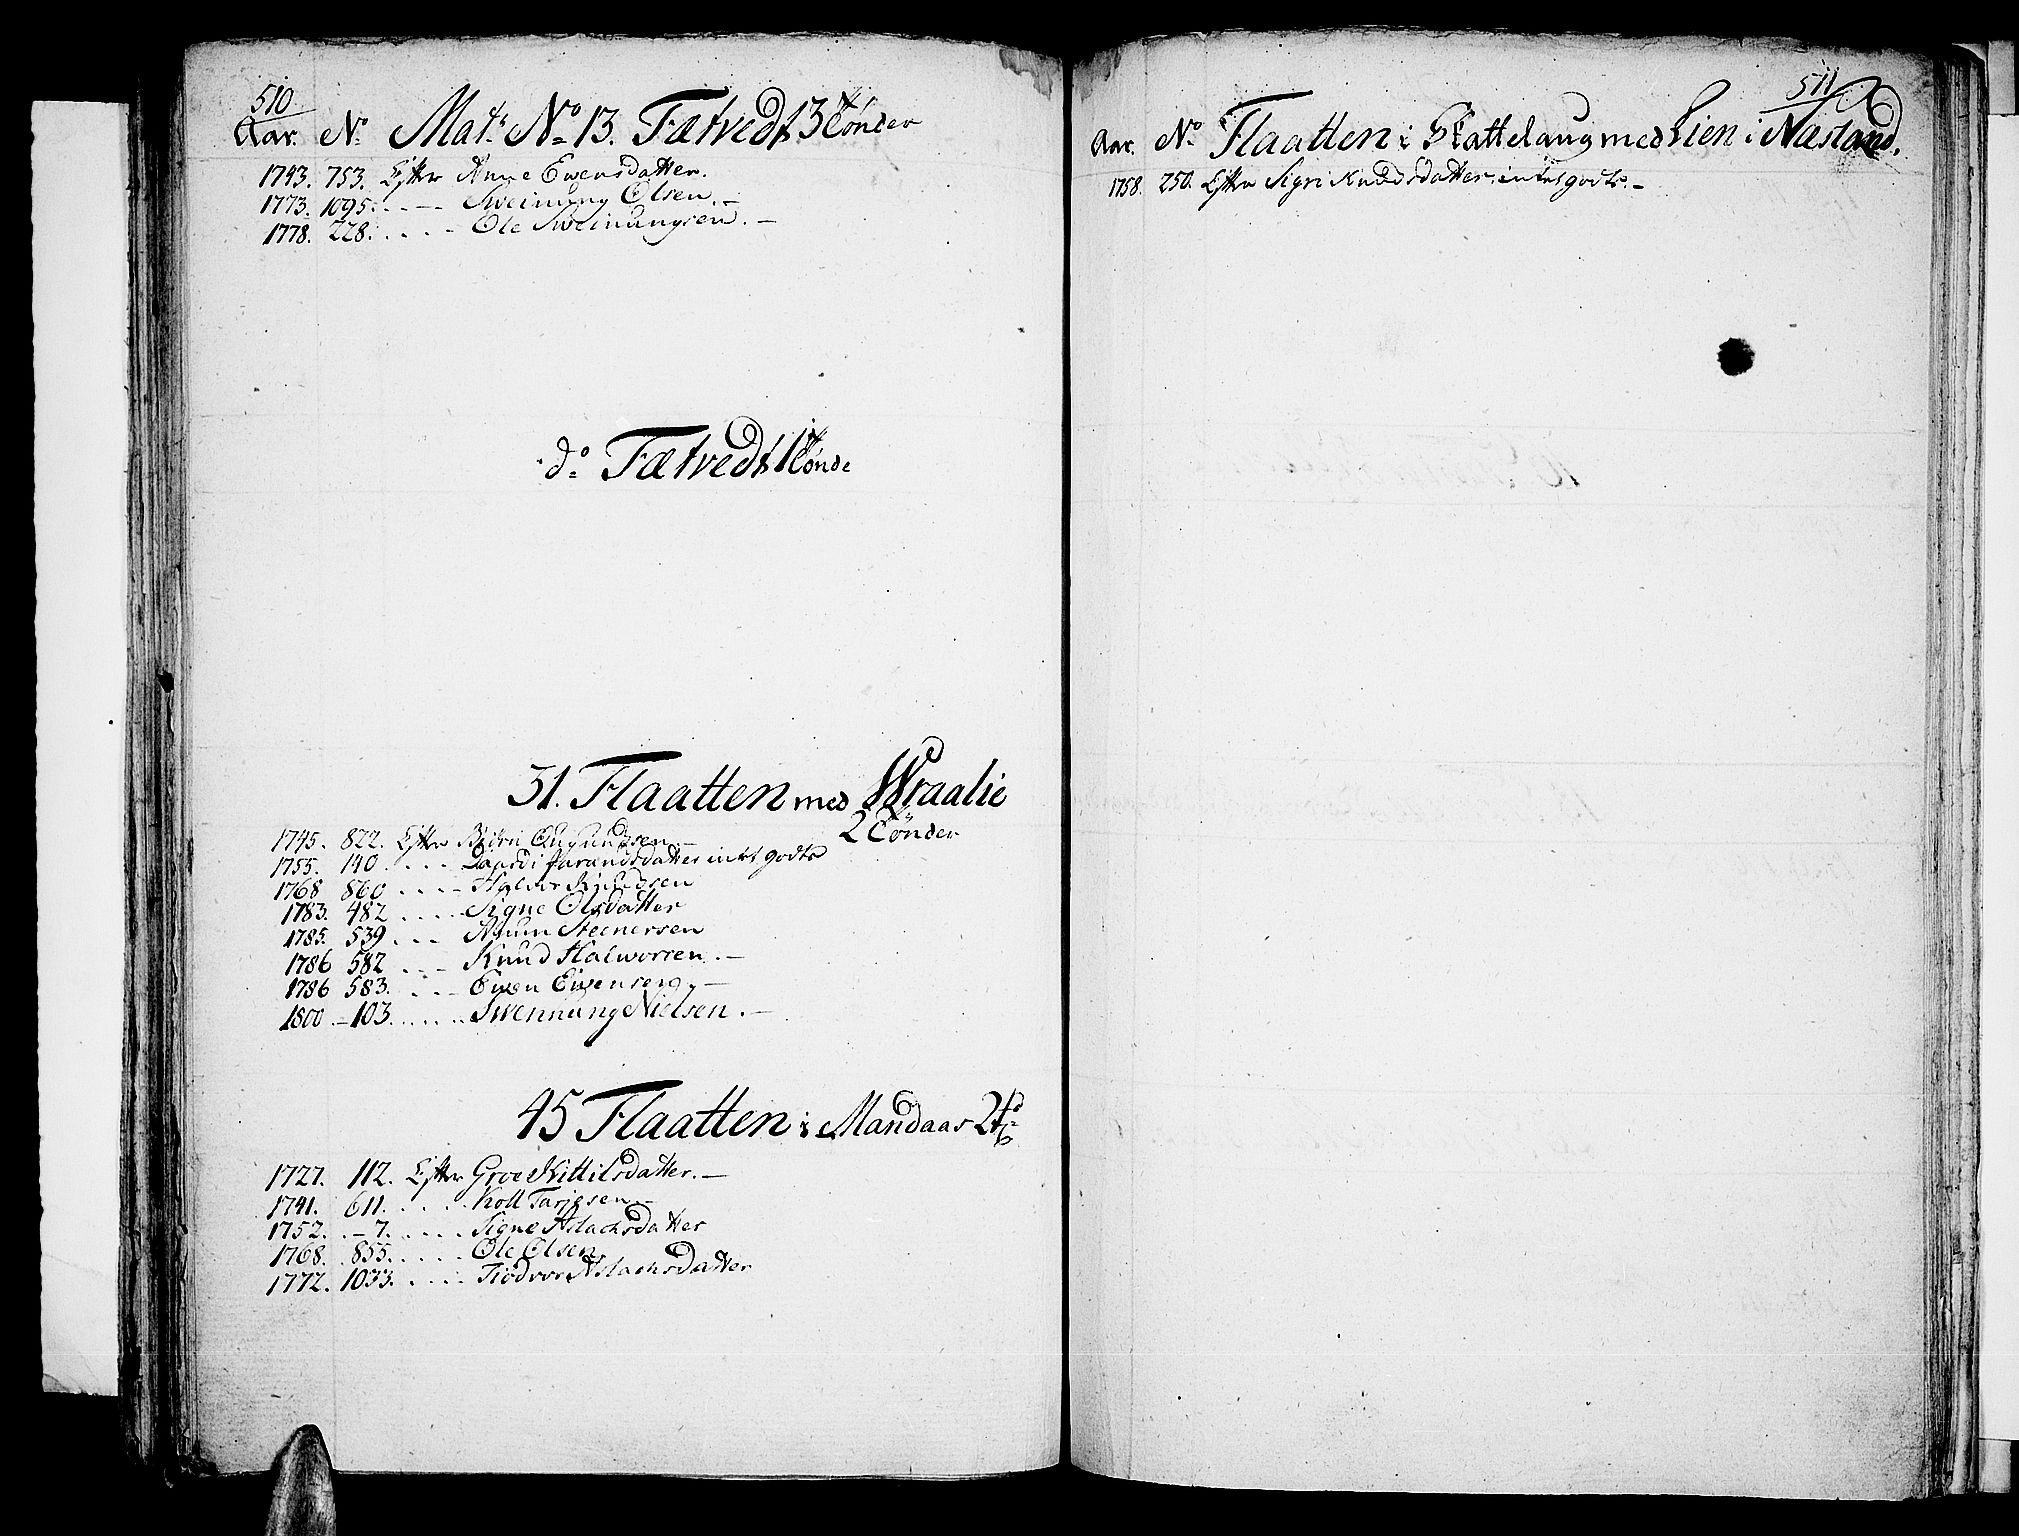 510
Aar. No Matr No 13. Fætvedt 3 Tönder
1743. 753. Efter Anne Ewensdatter.
1773. 1095. - - - Sweinung Olsen. -
1778. 228. - - - - Ole Sweinungsen. -
do Fætvedt 1 Tönde
31. Flaatten med Wraalie
2 Tönder
1745. 822. Efter Biörn Augundsen -
1755. 140. - - - Jarandsdatter intet godts
1768 860 - - - - Halvor Knudsen
1783. 482 - - - - Signe Olsdatter
1785. 539 - - - Steenersen
1786 582 - - - Knud Halworsen. -
1786 583. - - - Ewen Ewensen. -
1800 - 103. - - - - - Swennung Nielsen. -
45 Flaatten i Mandaas 2
1727. 112. Efter Groe Kittilsdatter. -
1741. 611. - - - - Koll Tarjesen -
1752. - 7. - - - - - Signe Aslachsdatter
1768. 855. - - - - - Ole Olsen
1772. 1033. - - - - Aslachsdatter
511
Aar. No Flaatten i Skattelaug med Lien i Næsland.
1758. 250. Efter Sigri Knudsdatter intet godts. -